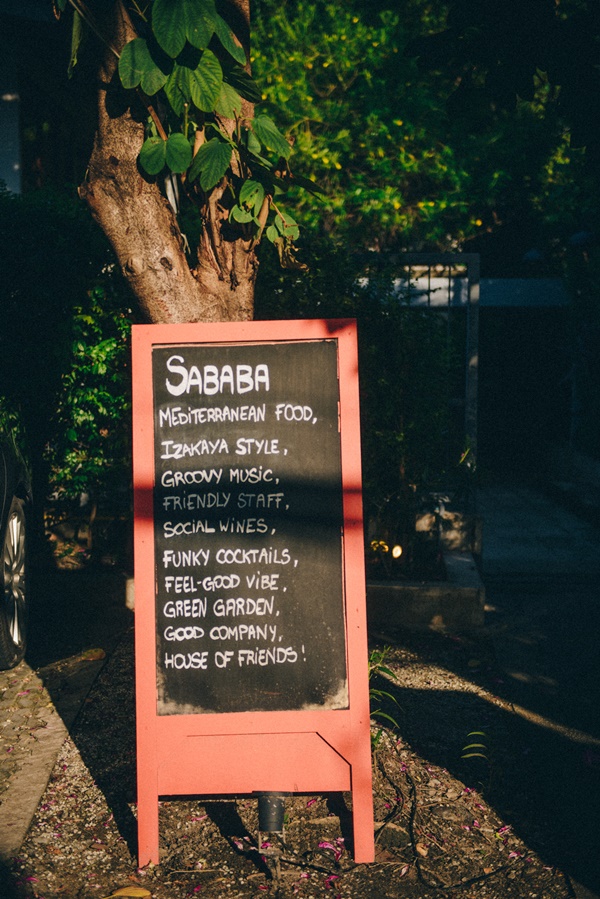 SABABA
MEDITERRANEAN FOOD,
IZAKAYA STYLE,
GROOVY MUSIC,
FRIENDLY STAFF,
SOCIAL WINES,
FUNKY COCKTAILS,
FEEL-GOOD VIBE,
GREEN GARDEN,
GOOD COMPANY,
HOUSE OF FRIENDS!